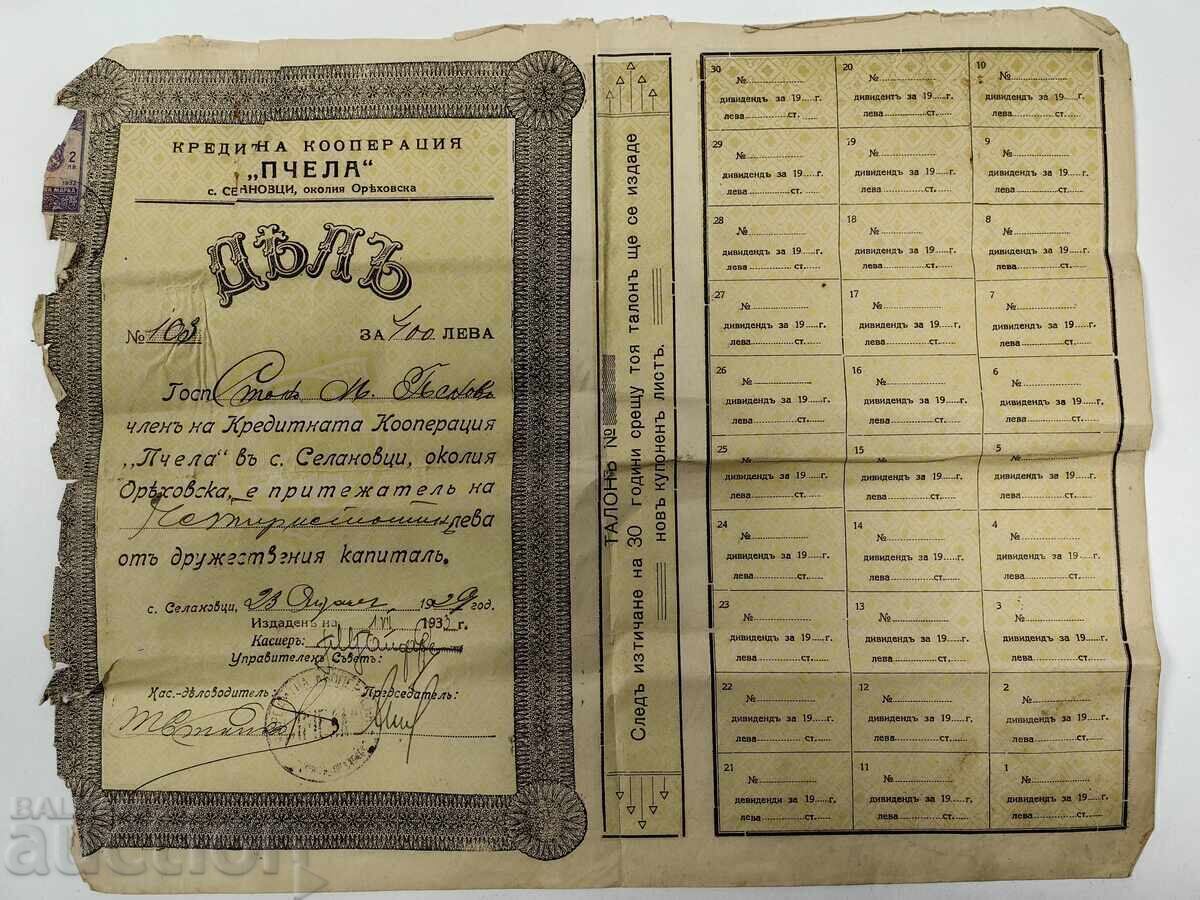 КРЕДИТНА КООПЕРАЦИЯ
„ПЧЕЛА“
с. СЕЛАНОВЦИ, околия Орѣховска
ДѢЛЪ
№ 103 ЗА 400 ЛЕВА
Госп М.
членъ на Кредитната Кооперация
„Пчела“ въ с. Селановци, околия
Орѣховска, е притежател на
Четиристотин лева
отъ дружествения капиталъ.
с. Селановци, 23 1929 год.
Издаденъ на 1 VII 193 г.
Касиеръ:
Управителенъ Съветъ:
Кас.-дѣловодителъ: Председателъ:
2
ЛВ.
1932
МАРКА
ТАЛОНЪ №
Следъ изтичане на 30 години срещу тоя талонъ ще се издаде
новъ купоненъ листъ.
30 № дивидендъ за 19.....г. лева ст.
20 № дивидентъ за 19.....г. лева ст.
10 № дивидендъ за 19.....г. лева ст.
29 № дивидендъ за 19.....г. лева ст.
19 № дивидендъ за 19.....г. лева ст.
9 № дивидендъ за 19.....г. лева ст.
28 № дивидендъ за 19.....г. лева ст.
18 № дивидендъ за 19.....г. лева ст.
8 № дивидендъ за 19.....г. лева ст.
27 № дивидендъ за 19.....г. лева ст.
17 № дивидендъ за 19.....г. лева ст.
7 № дивидендъ за 19.....г. лева ст.
26 № дивидендъ за 19.....г. лева ст.
16 № дивидендъ за 19.....г. лева ст.
6 № дивидендъ за 19.....г. лева ст.
25 № дивидендъ за 19.....г. лева ст.
15 № дивидендъ за 19.....г. лева ст.
5 № дивидендъ за 19.....г. лева ст.
24 № дивидендъ за 19.....г. лева ст.
14 № дивидендъ за 19.....г. лева ст.
4 № дивидендъ за 19.....г. лева ст.
23 № дивидендъ за 19.....г. лева ст.
13 № дивидендъ за 19.....г. лева ст.
3 № дивидендъ за 19.....г. лева ст.
22 № дивидендъ за 19.....г. лева ст.
12 № дивидендъ за 19.....г. лева ст.
2 № дивидендъ за 19.....г. лева ст.
21 № девиденди за 19.....г. лева ст.
11 № дивидендъ за 19.....г. лева ст.
1 № дивидендъ за 19.....г. лева ст.